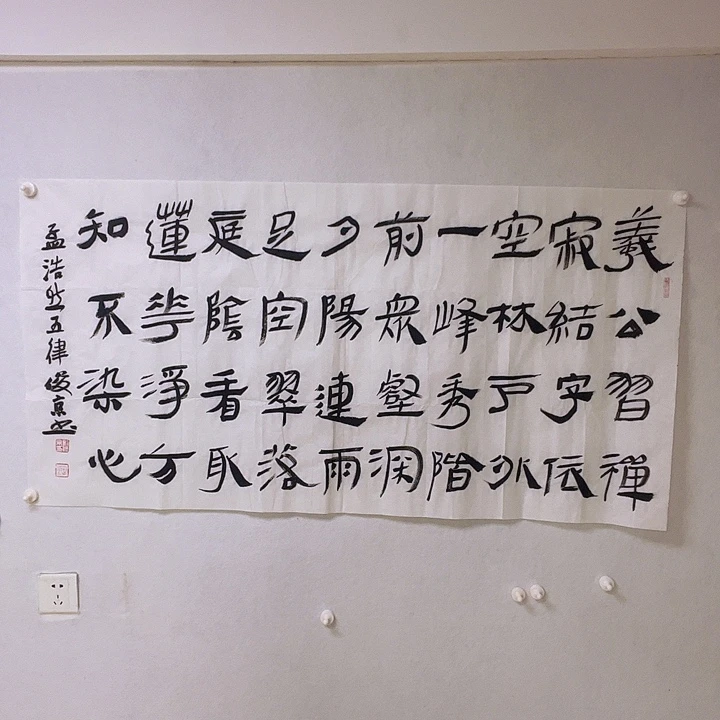 義公習禪
寂結宇依
空林戶外
一峰秀階
前眾壑深
夕陽連雨
足空翠落
庭陰看取
蓮花淨方
知不染心
孟浩然五律俊京书